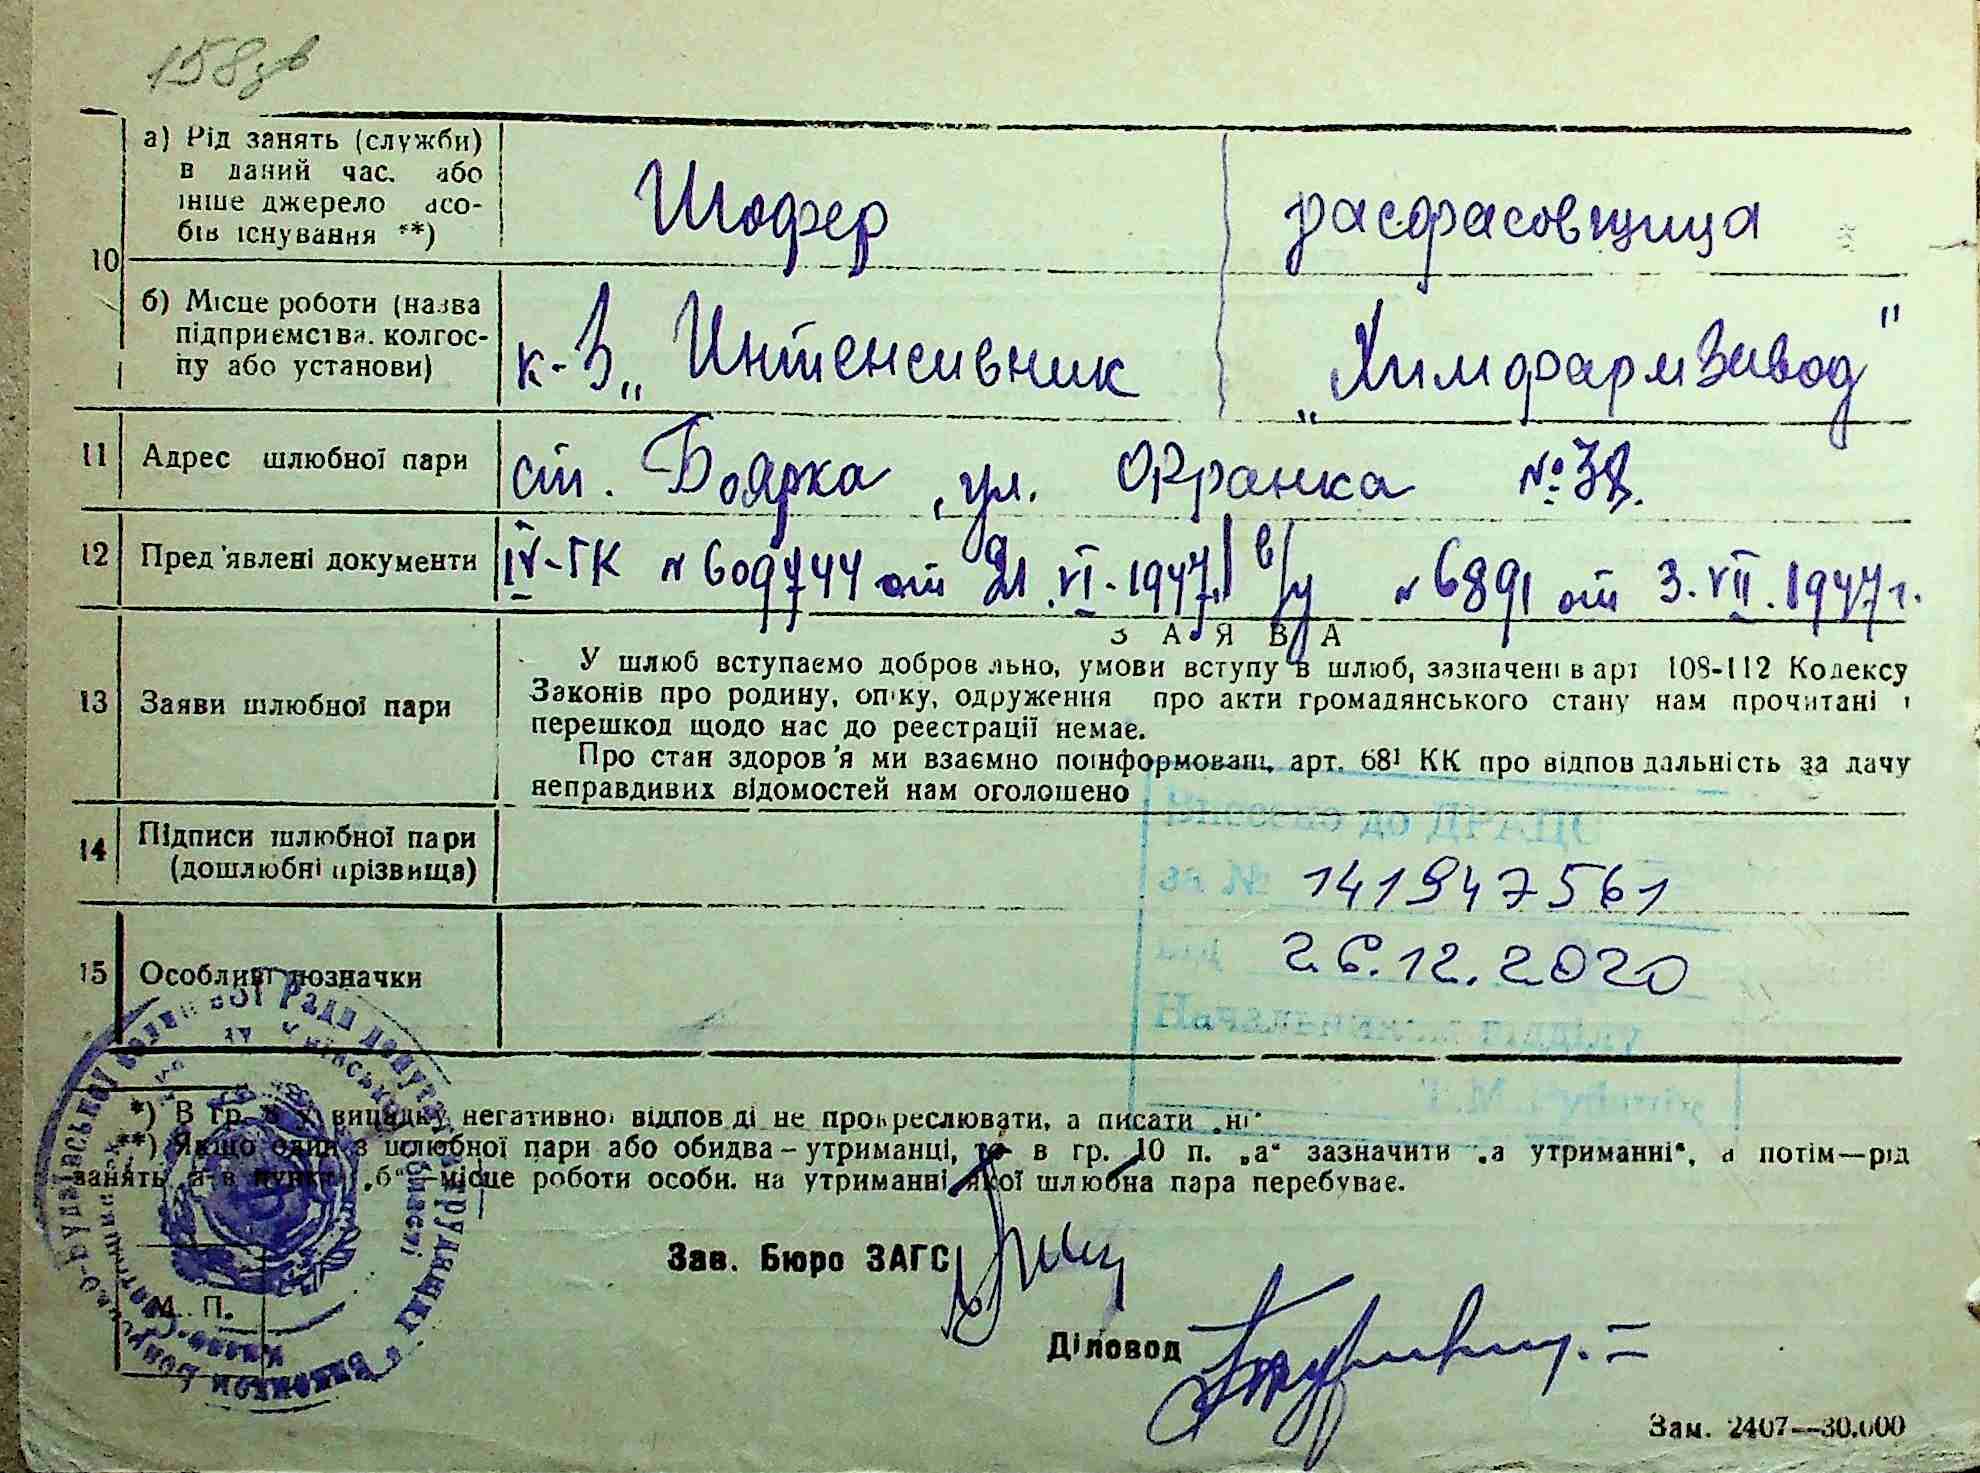 158зв
а) Рід занять (служби)
в даний час. або
інше джерело асо-
бів існування **)
Шофер
расфасовщица
10
б) Місце роботи (назва
підприємства. колгос-
пу або установи)
к-з „Интенсивник
„Химфармзавод"
11 Адрес шлюбної пари
ст. Боярка, ул. Франка № 38.
12 Пред'явлені документи
IV-ГК № 609744 от 21.VI-1947. в/у № 6891 от 3.VII.1947г.
З А Я В А
13 Заяви шлюбної пари
У шлюб вступаємо добров льно, умови вступу в шлюб, зазначені в арт 108-112 Кодексу
Законів про родину, опіку, одруження про акти громадянського стану нам прочитані і
перешкод щодо нас до реєстрації немає.
Про стан здоров'я ми взаємно поінформовані, арт. 68¹ КК про відпов дальність за дачу
неправдивих відомостей нам оголошено
14 Підписи шлюбної пари
(дошлюбні прізвища)
Внесено до ДРАЦС
за № 141947561
від 26.12.2020
15 Особливі позначки
Начальник відділу
*) В гр. у випадку негативної відпов ді не прокреслювати, а писати „ні"
**) Якщо один з шлюбної пари або обидва – утриманці, то в гр. 10 п. „а" зазначити „а утриманні", а потім—рід
занять, а в пункті „б"—місце роботи особи. на утриманні якої шлюбна пара перебуває.
Зав. Бюро ЗАГС
М. П.
Діловод
Зам. 2407—30.000